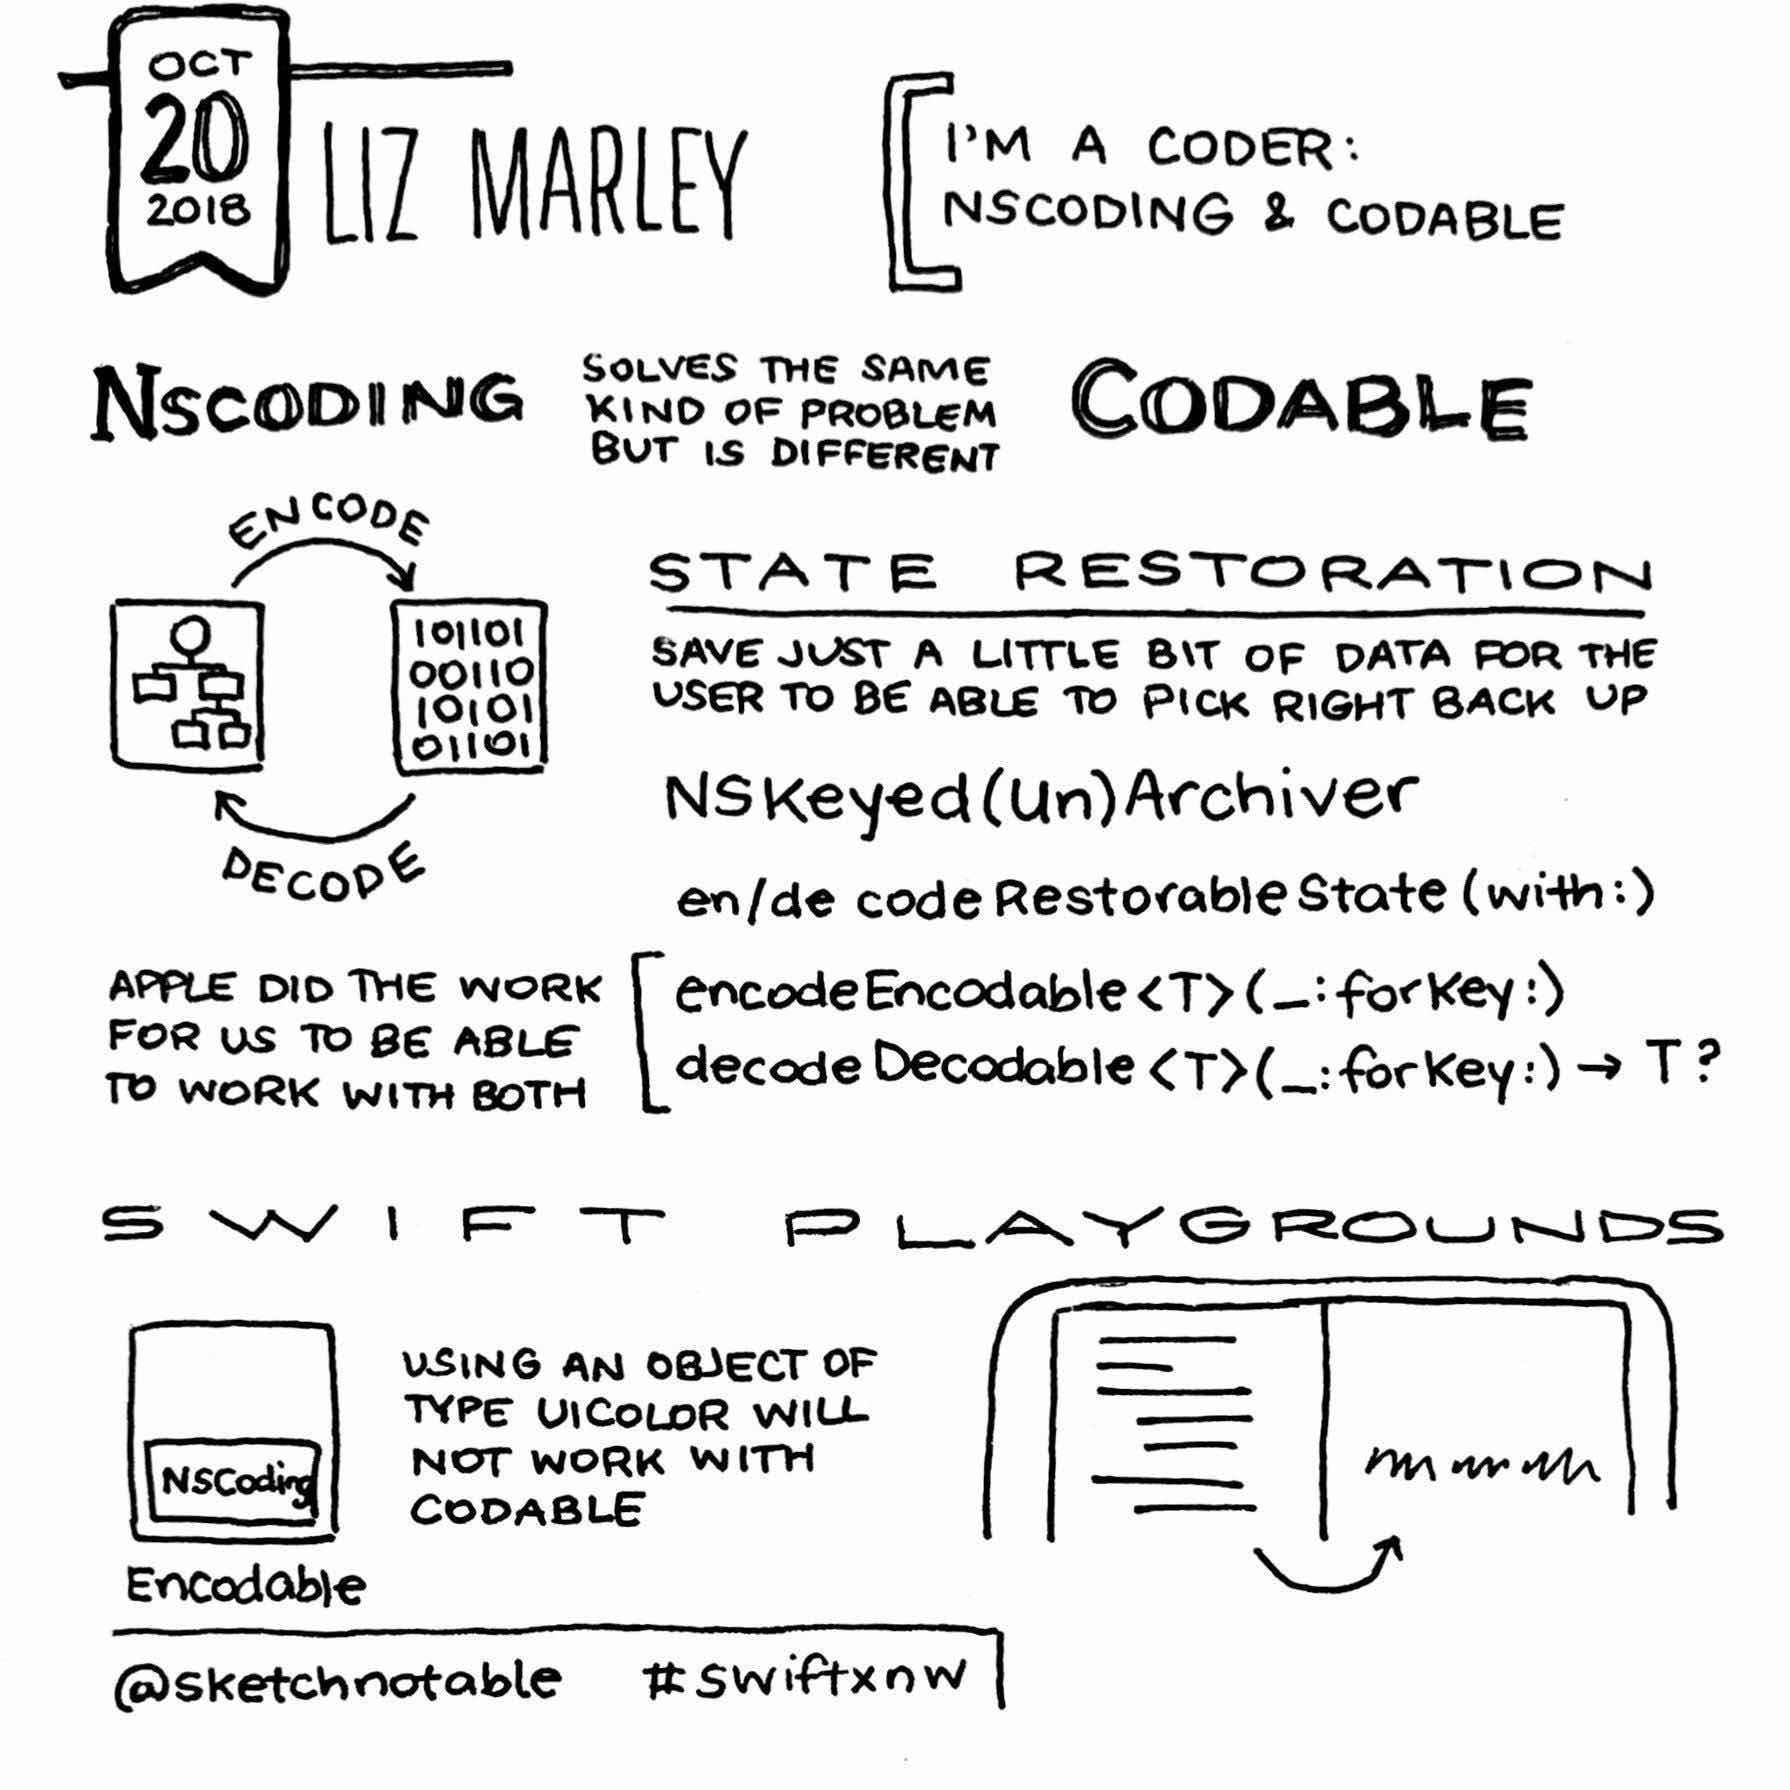 OCT
20
2018
LIZ MARLEY
I'M A CODER:
NSCODING & CODABLE
NSCODING
SOLVES THE SAME
KIND OF PROBLEM
BUT IS DIFFERENT
CODABLE
ENCODE
101101
00110
10101
01101
DECODE
STATE RESTORATION
SAVE JUST A LITTLE BIT OF DATA FOR THE
USER TO BE ABLE TO PICK RIGHT BACK UP
NSKeyed(un)Archiver
en/de codeRestorableState (with:)
APPLE DID THE WORK
FOR US TO BE ABLE
TO WORK WITH BOTH
encodeEncodable<T>(_:forKey:)
decodeDecodable<T>(_:forKey:) → T?
SWIFT PLAYGROUNDS
NSCoding
Encodable
USING AN OBJECT OF
TYPE UICOLOR WILL
NOT WORK WITH
CODABLE
@sketchnotable #swiftxnw